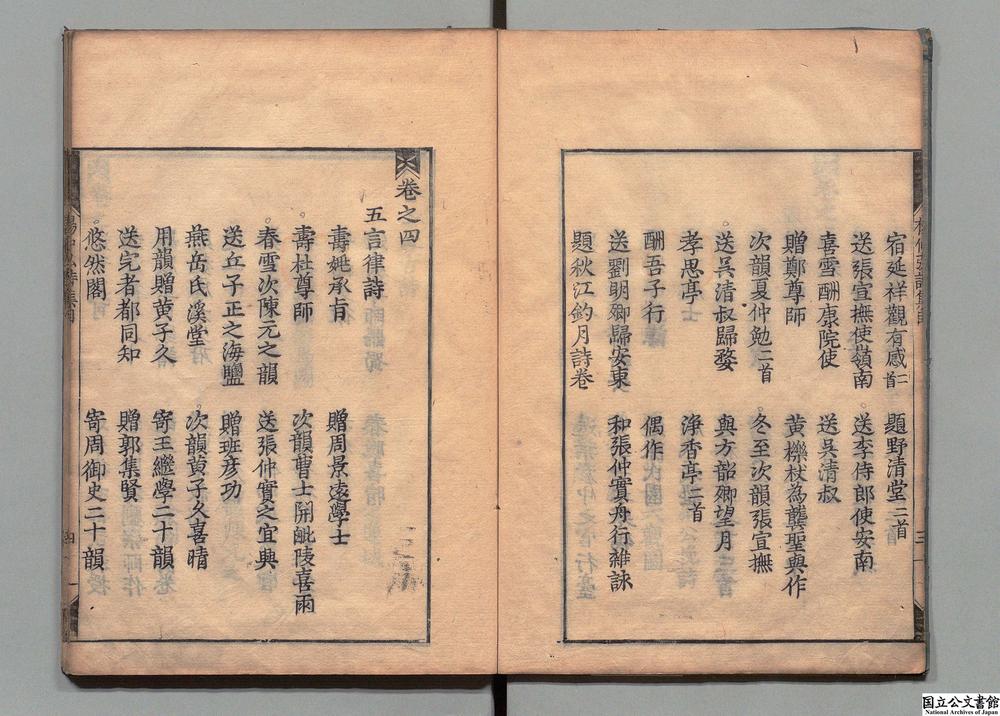 宿延祥觀有感二首
題野清堂二首
送張宣撫使嶺南
送李侍郎使安南
喜雪酬康院使
送吳清叔
贈鄭尊師
黃櫟杖為龔聖與作
次韻夏仲勉二首
冬至次韻張宣撫
送吳清叔歸婺
與方韶卿望月
孝思亭
淨香亭二首
酬吾子行
偶作
送劉明卿歸安東
和張仲實舟行雜詠
題秋江釣月詩卷
三
卷之四
五言律詩
壽姚承旨
贈周景遠學士
壽杜尊師
次韻曹士開毗陵喜雨
春雪次陳元之韻
送張仲實之宜興
送丘子正之海鹽
贈班彥功
燕岳氏溪堂
次韻黃子久喜晴
用韻贈黃子久
寄王繼學二十韻
送完者都同知
贈郭集賢
悠然閣
寄周御史二十韻
四
国立公文書館
National Archives of Japan